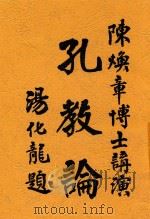 陳煥章博士講演
孔教論
湯化龍題
www.mtoou.info